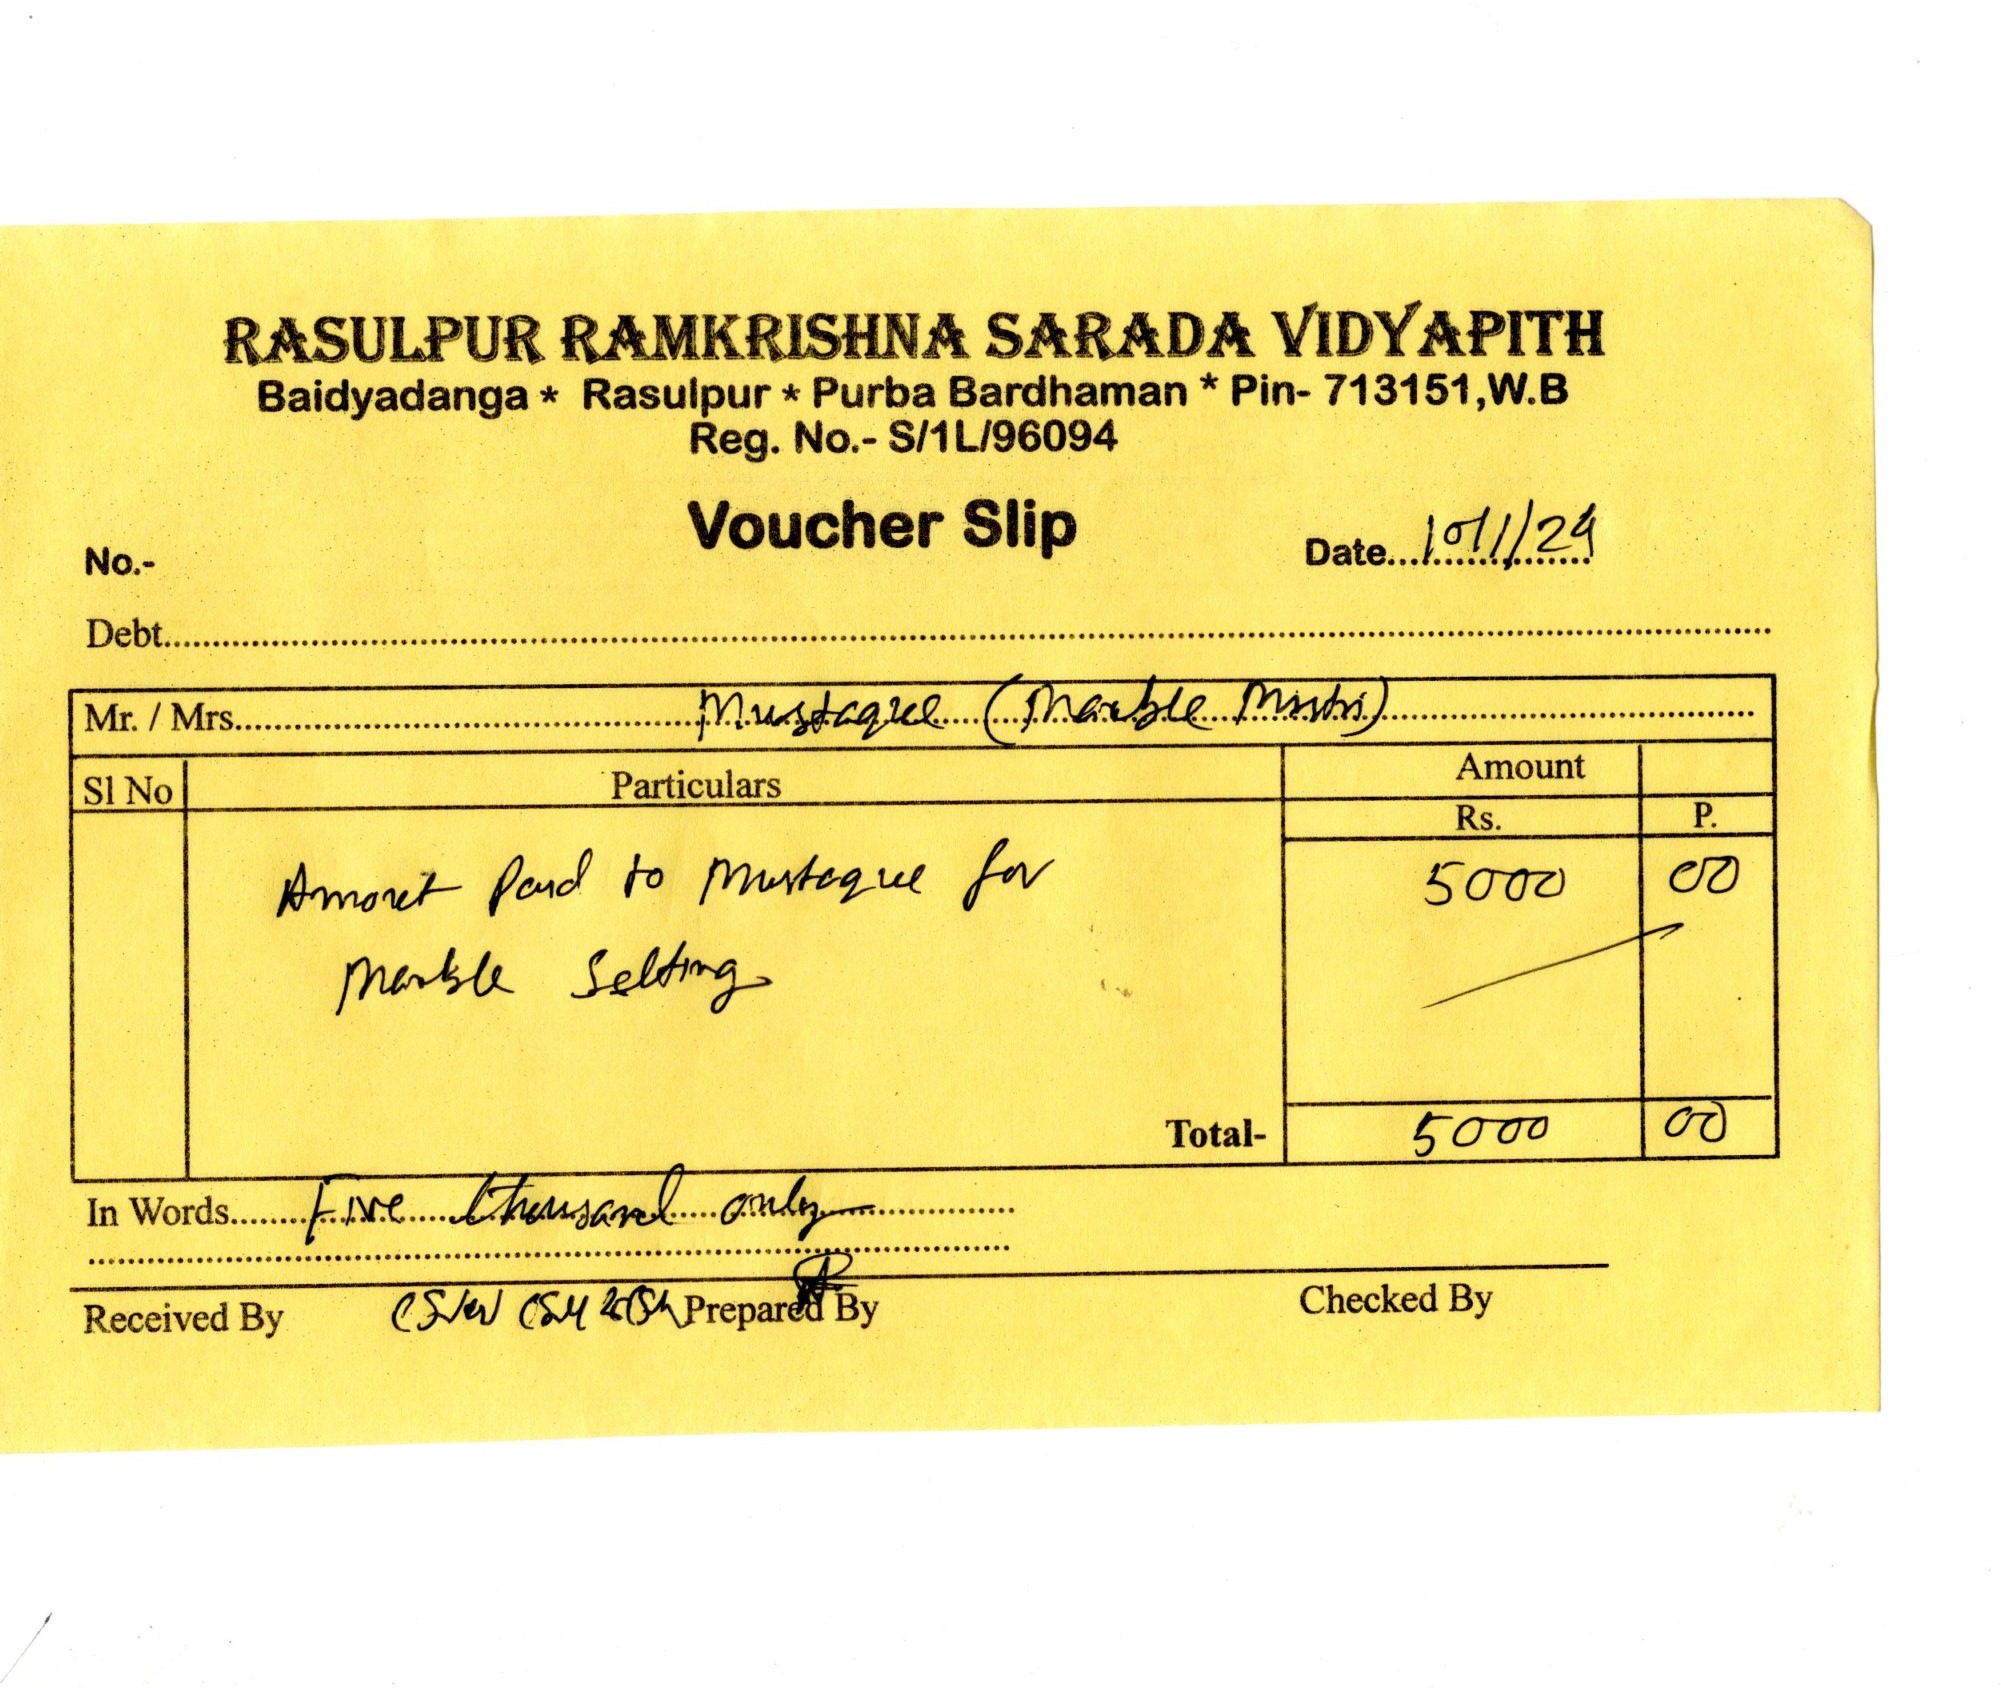 RASULPUR RAMKRISHNA SARADA VIDYAPITH
Baidyadanga * Rasulpur * Purba Bardhaman * Pin- 713151,W.B
Reg. No.- S/1L/96094
Voucher Slip
No.-
Date...10/1/24
Debt
Mr. / Mrs. Mustaque (Marble Mistri)
Sl No Particulars Amount
Rs. P.
Amount Paid to Mustaque for 5000 00
Marble Setting
Total- 5000 00
In Words Five thousand only
Received By Prepared By Checked By